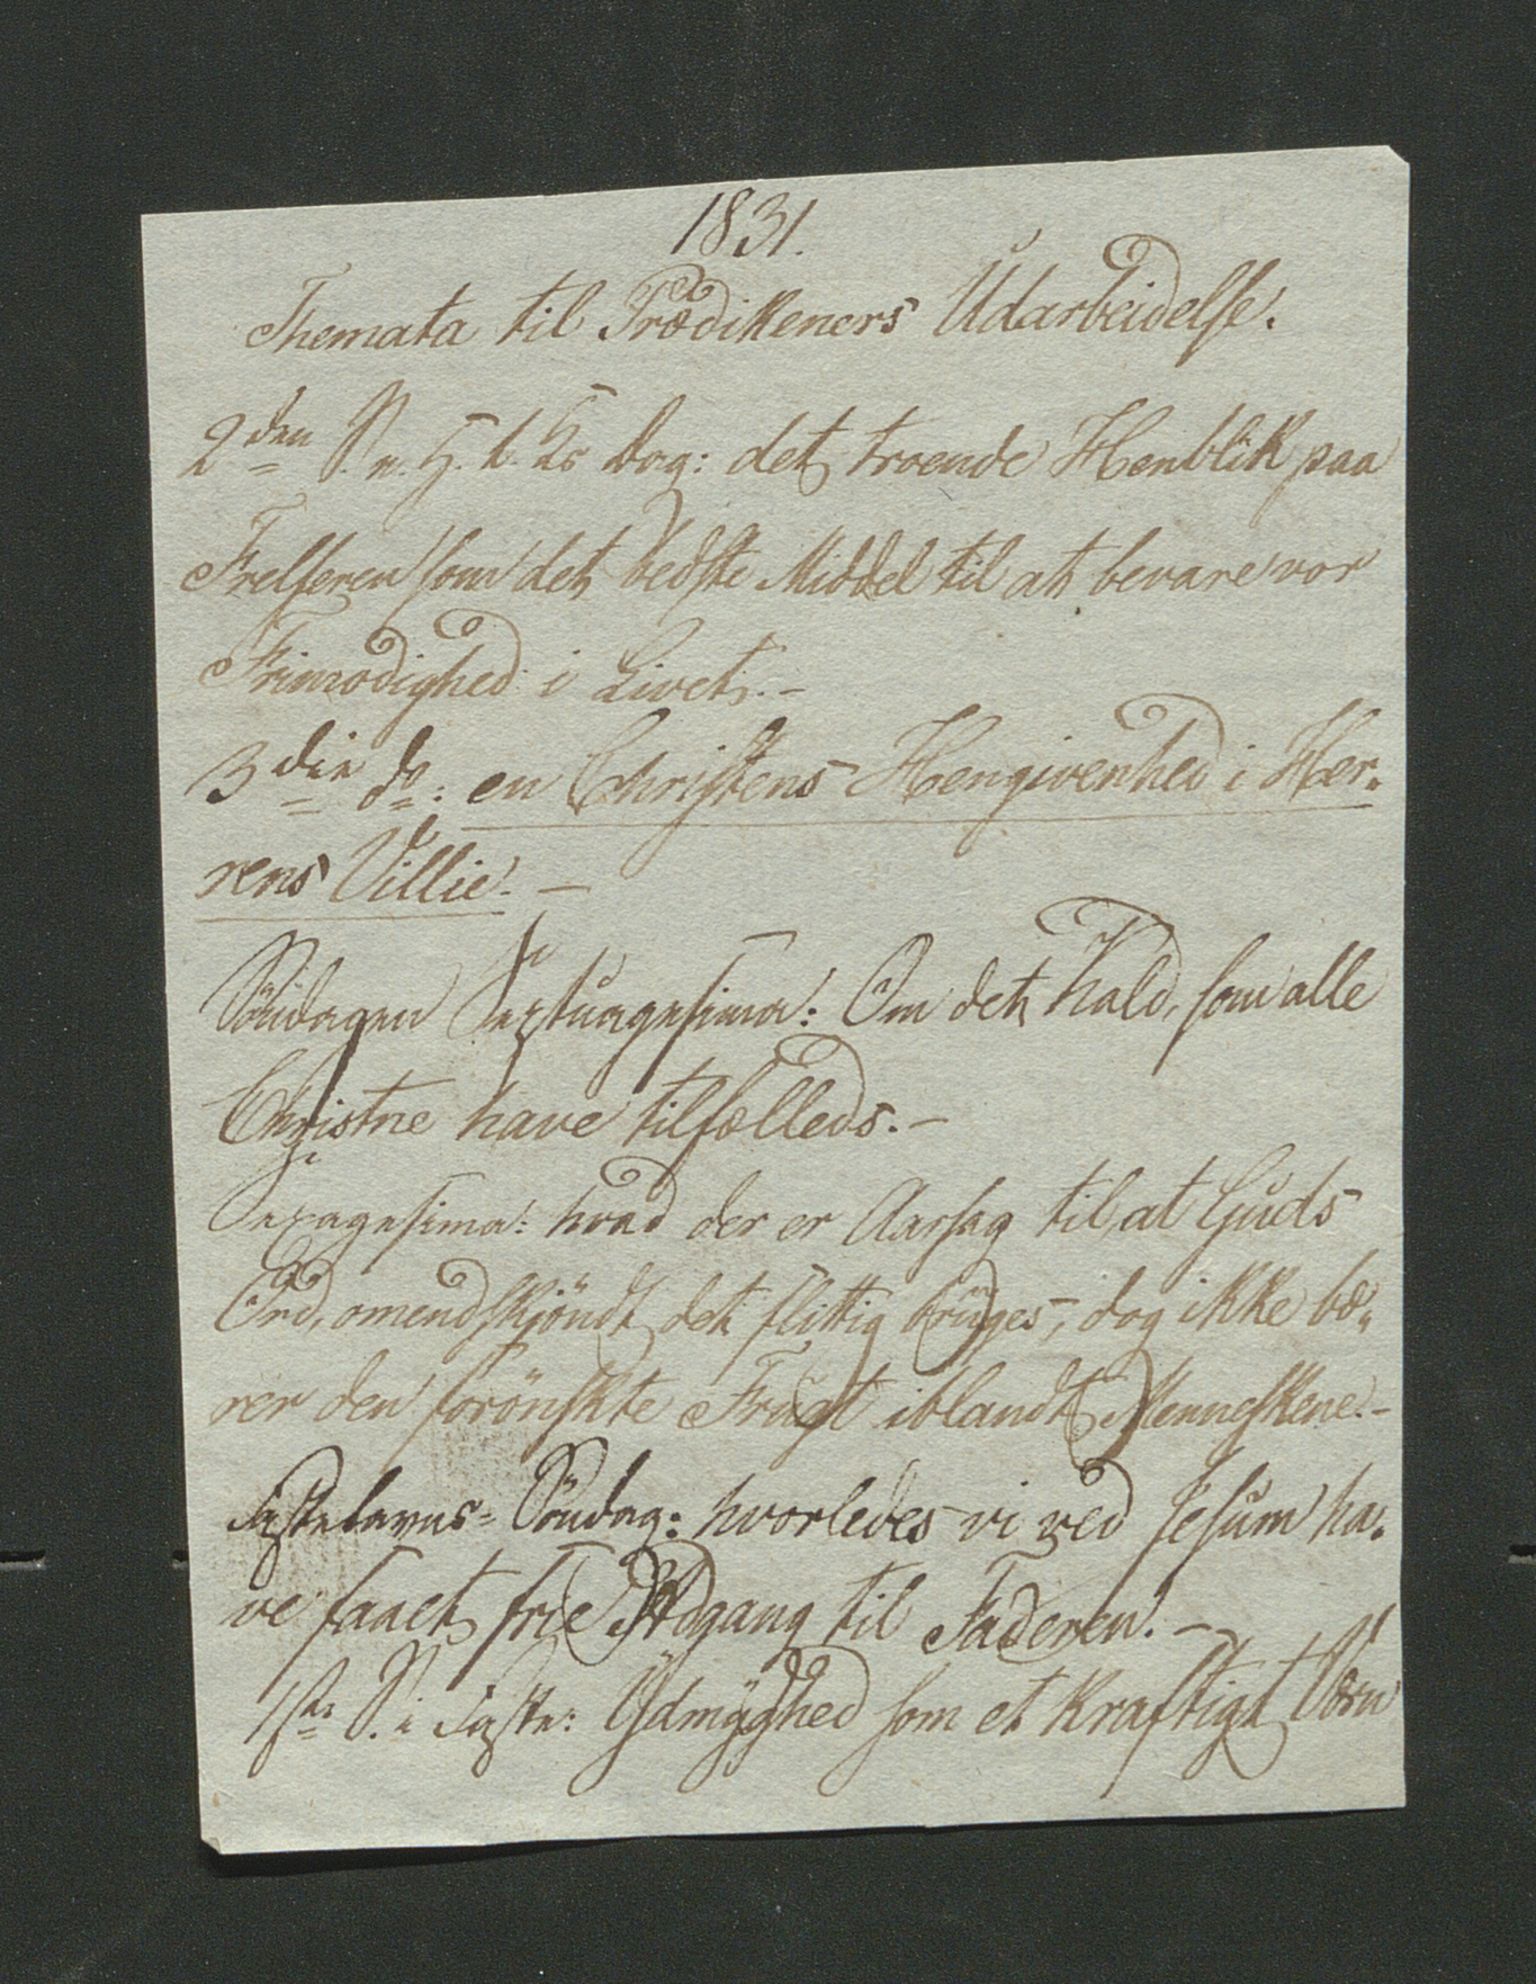 1831.
Themata til Prædikeners Udarbeidelse.
2den S. n. H. 3. K. Dag: det troende Henblik paa
Frelseren som det bedste Middel til at bevare vor
Frimodighed i Livet. –
3die do: en Christens Hengivenhed i Her-
rens Villie. –
Söndagen Septuagesima: Om det Kald, som alle
Christne have tilfælleds. –
Sexagesima: hvad der er Aarsag til, at Guds
Ord, omendskjöndt det flittig brüges, dog ikke bæ-
rer den forönskte Frügt iblandt Menneskene. –
Fastelavns-Söndag: hvorledes vi ved Jesum ha-
ve faaet frie Adgang til Faderen. –
1ste S. i Faste: Ydmyghed som et kraftigt Værn